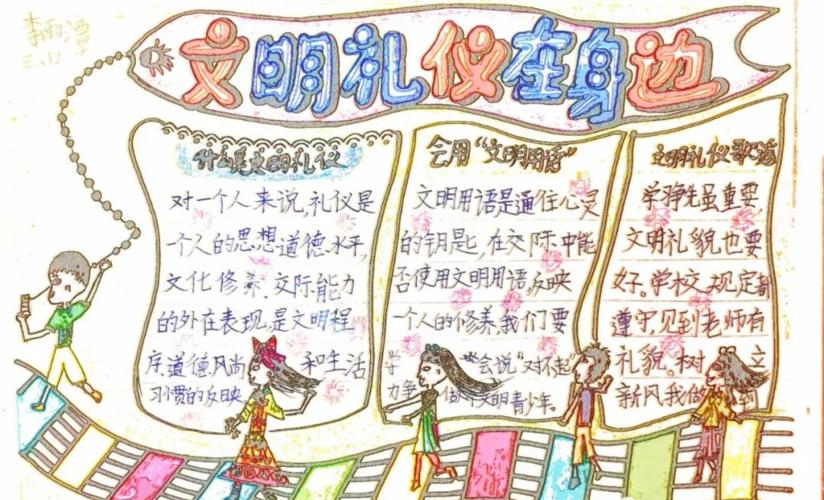 李雨潭
文明礼仪在身边
什么是文明礼仪
对一个人来说,礼仪是
一个人的思想道德水平,
文化修养、交际能力
的外在表现,是文明程
序、道德风尚 和生活
习惯的反映
会用“文明用语”
文明用语是通往心灵
的钥匙,在交际中能
否使用文明用语,反映
一个人的修养,我们要
学 会说“对不起”
力争 做个文明青少年。
文明礼仪歌谣
学争先虽重要
文明礼貌也要
好。学校规定都
遵守,见到老师有
礼貌。树 立
新风我做